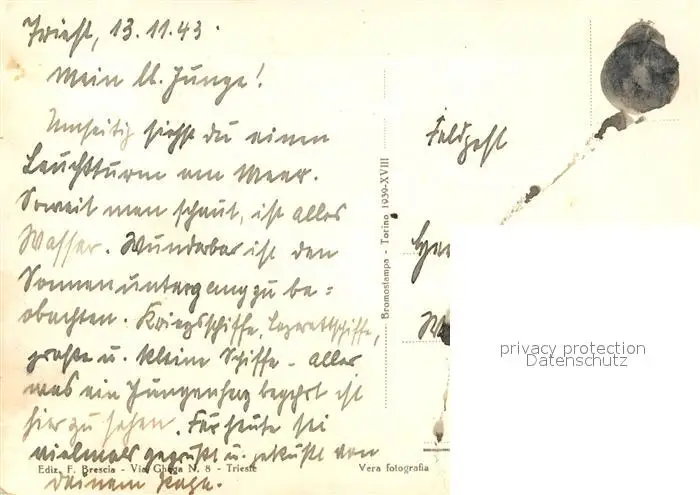 Triest, 13.11.43.
Mein lb. Junge!
Umseitig siehst du einen
Leuchtturm am Meer.
Soweit man schaut, ist alles
Wasser. Wunderbar ist den
Sonnenuntergang zu be=
obachten. Kriegsschiffe, Lazarettschiffe,
große u. kleine Schiffe - alles
was ein Jungenherz begehrt ist
hier zu sehen. Für heute sei
vielmals gegrüßt u. geküßt von
deinem
Ediz. F. Brescia - Via Ghega N. 8 - Trieste
Bromostampa - Torino 1939-XVIII
Vera fotografia
Feldpost
privacy protection
Datenschutz